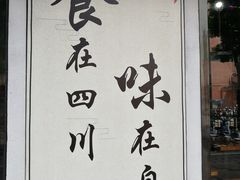 食在四川
味在